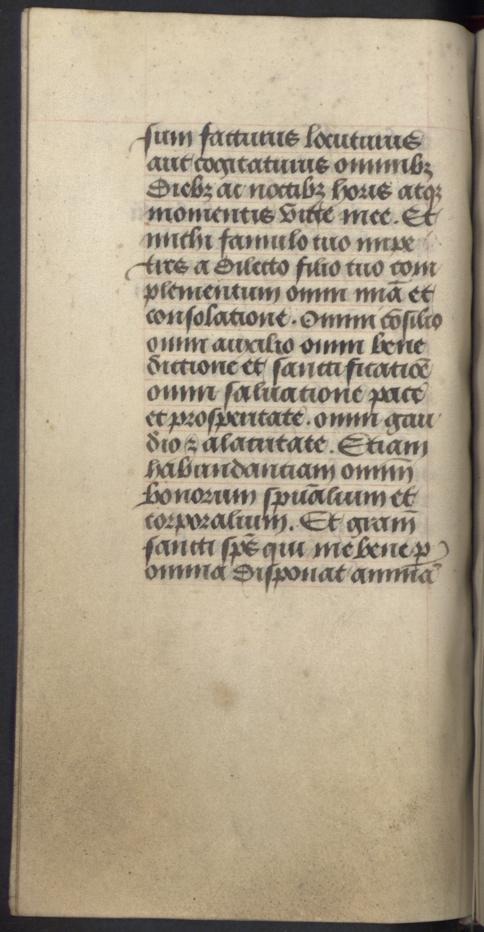 sum facturus locuturus
aut cogitaturus omnibꝫ
Diebꝫ ac noctibꝫ horis atqꝫ
momentis vite mee. Et
michi famulo tuo inpe
tres a Dilecto filio tuo com
plementum omni mīa et
consolatione. Omni cōsilio
omni auxilio omni bene
dictione et sanctificatiōe
omni saluatione pace
et prosperitate. omni gau
dio ⁊ alacritate. Etiam
habundantiam omni
bonorum spūalium et
corporalium. Et gram̄
sancti spūs qui me bene ꝑ
omnia Disponat animā